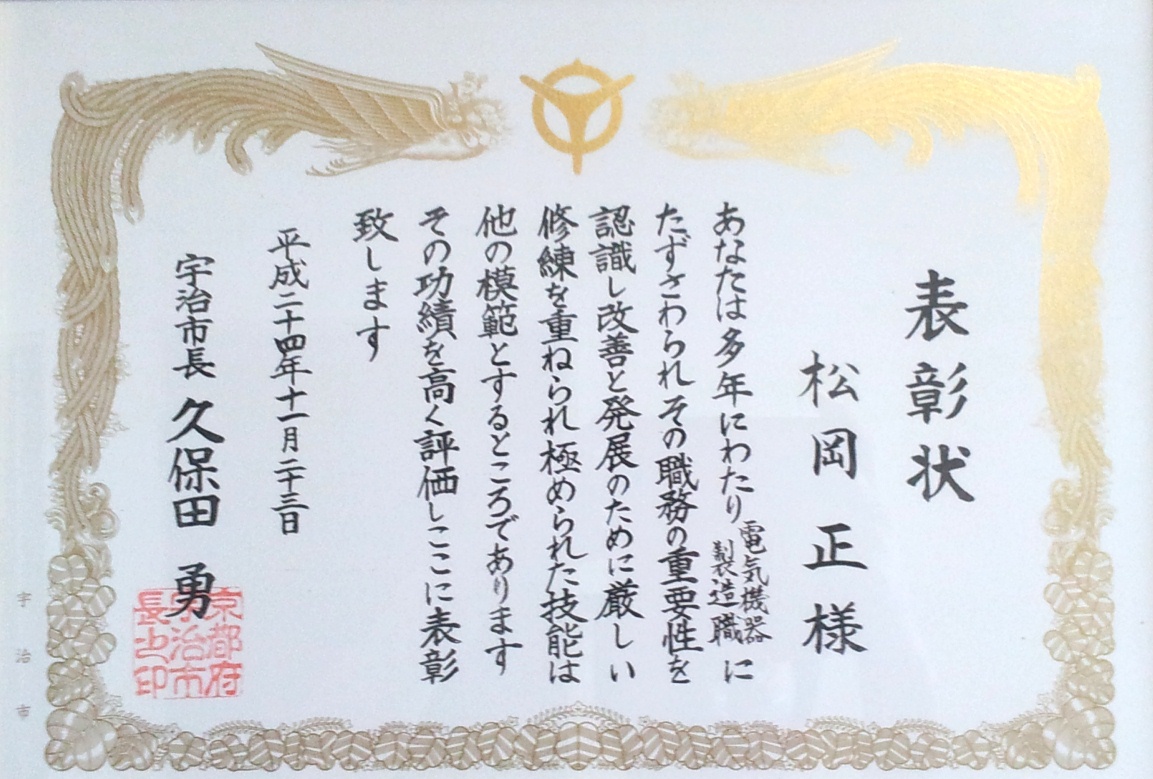 表彰状
松岡正様
あなたは多年にわたり電気機器製造職に
たずさわられその職務の重要性を
認識し改善と発展のために厳しい
修練を重ねられ極められた技能は
他の模範とするところであります
その功績を高く評価しここに表彰
致します
平成二十四年十一月二十三日
宇治市長 久保田 勇
京都府
宇治市
長之印
宇治市